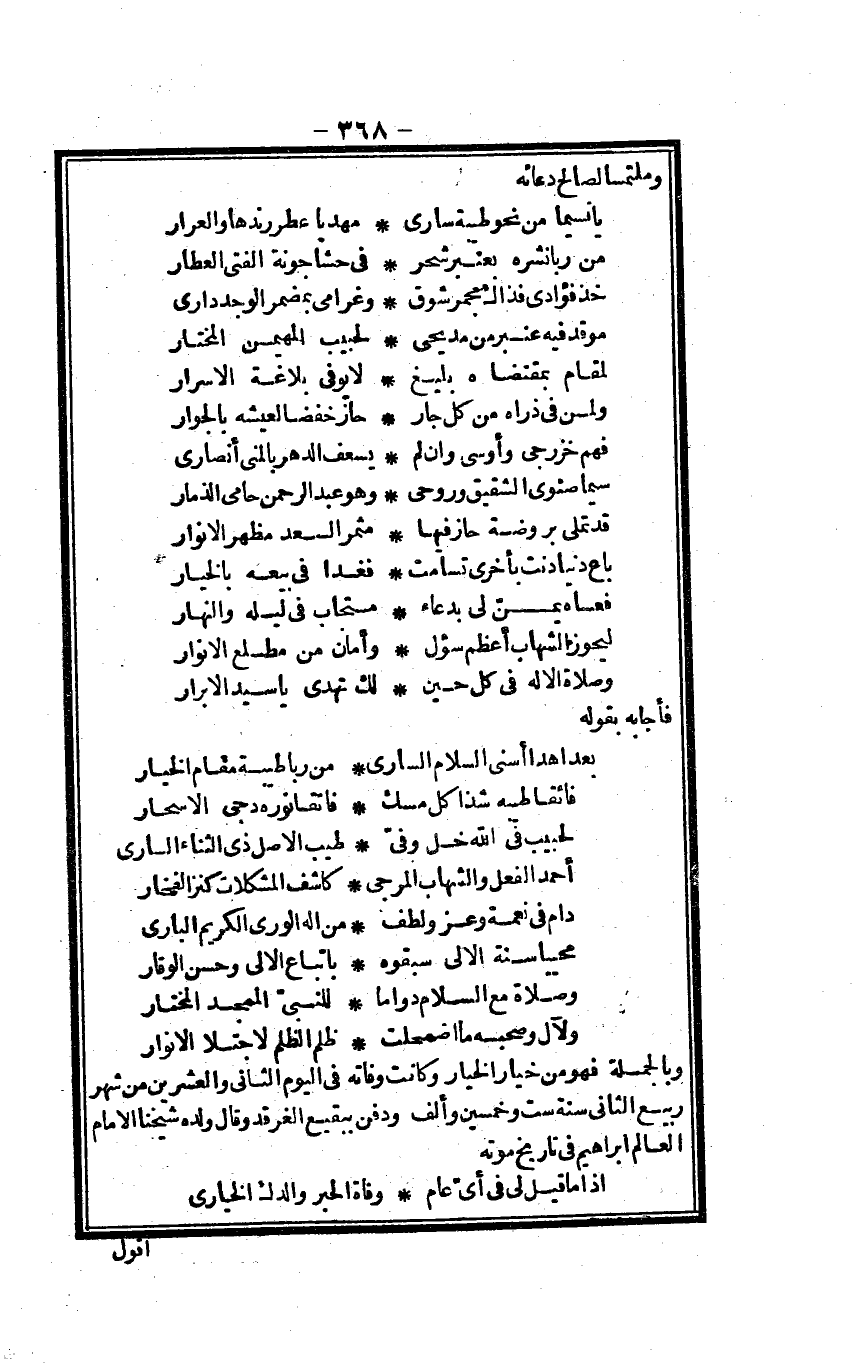 - ٣٦٨ -
وملتمسا لصالح دعائه
يا نسيما من نحو طيبة سارى * مهديا عطر رندها والعرار
من ربا نشره بعنبر شحر * فى حشا جونة الفتى العطار
خذ فؤادى فذا لك مجمر شوق * وغرامى بمضمر الوجد دارى
موقد فيه عنبر من مديحى * لحبيب المهيمن المختار
لمقام بمقتضاه بليغ * لا يوفى بلاغة الاسرار
ولمن فى ذراه من كل جار * حاز خفض العيشه بالجوار
فهم خزرجى وأوسى وان لم * يسعف الدهر بالمنى أنصارى
سيما صنوى الشقيق وروحى * وهو عبد الرحمن حامى الذمار
قد تملى بروضة حاز فيها * مثمر السعد مظهر الانوار
باع دنيا دنت بأخرى تسامت * فغدا فى بيعه بالخيار
فعساه يمنّ لى بدعاء * مستجاب فى ليله والنهار
ليحوز الشهاب أعظم سؤل * وأمان من مطلع الانوار
وصلاة الاله فى كل حين * لك تهدى يا سيد الابرار
فأجابه بقوله
بعد اهدا أسنى السلام السارى * من ربا طيبة مقام الخيار
فائقا طيبه شذا كل مسك * فاتقا نوره دجى الاسحار
لحبيب فى الله خل وفىّ * طيب الاصل ذى الثناء السارى
أحمد الفعل والشهاب المرجى * كاشف المشكلات كنز الفخار
دام فى نعمة وعز ولطف * من اله الورى الكريم البارى
محييا سنة الالى سبقوه * باتباع الالى وحسن الوقار
وصلاة مع السلام دواما * للنبىّ الممجد المختار
ولآل وصحبه ما اضمحلت * ظلم الظلم لاجتلا الانوار
وبالجملة فهو من خيار الخيار وكانت وفاته فى اليوم الثانى والعشرين من شهر
ربيع الثانى سنة ست وخمسين وألف ودفن ببقيع الغرقد وقال ولده شيخنا الامام
العالم ابراهيم فى تاريخ موته
اذا ما قيل لى فى أىّ عام * وفاة الحبر والدك الخيارى
اقول